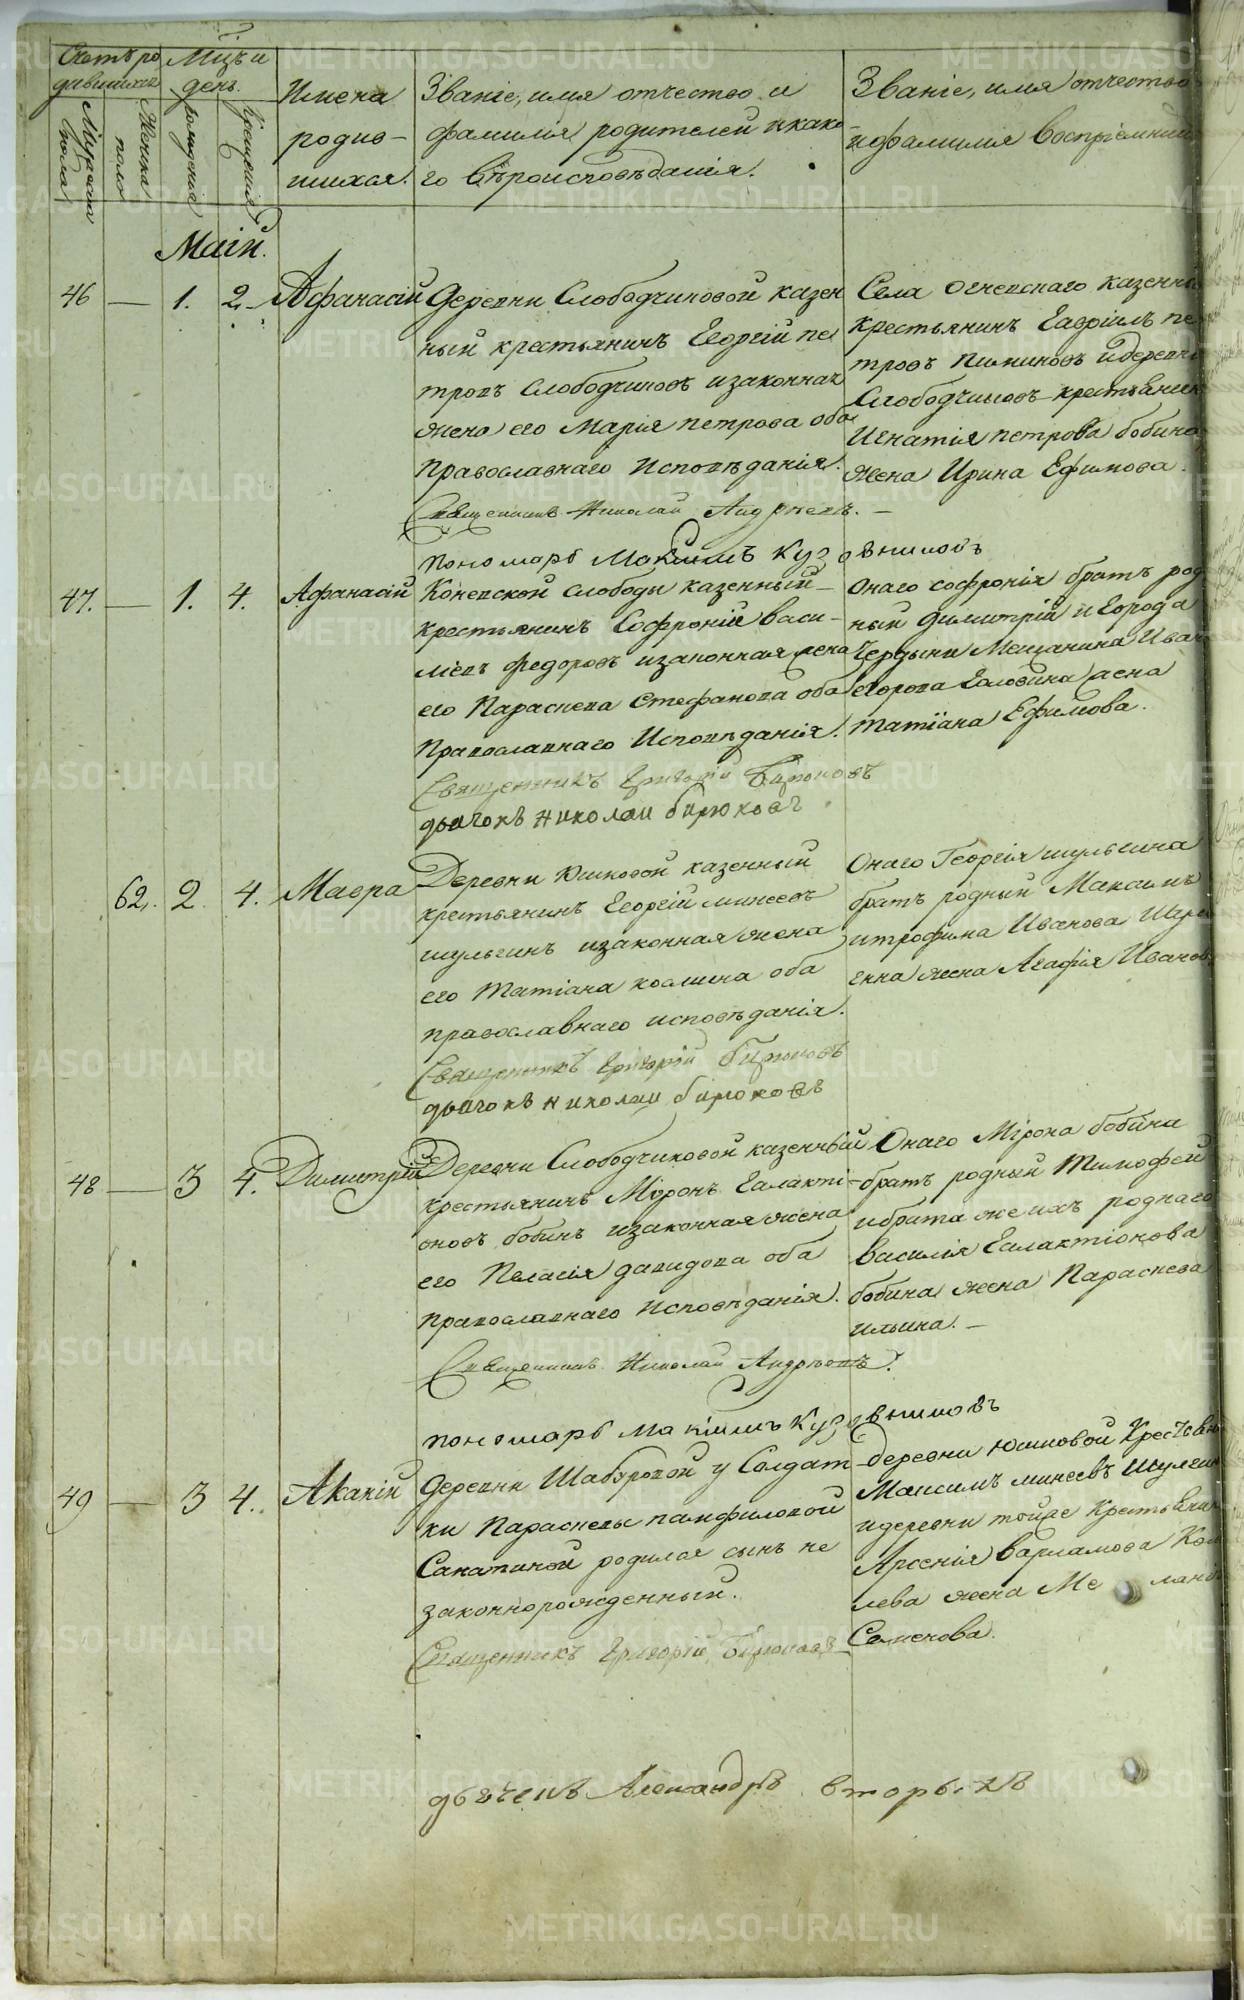 Счетъ ро
дившихся
Мужска
пола
Женска
пола
Мцъ и
день.
рождения
крещения
Имена
родив-
шихся.
Званіе, имя отчество и
фамилія родителей и како-
го вѣроисповѣданія.
Званіе, имя отчество
и фамилия воспріемник
Маій.
46 — 1. 2. Афанасій
Деревни Слободчиковой казен
ный крестьянинъ Георгій пе
тровъ Слободчиковъ и законная
жена его Марія петрова оба
Православнаго Исповѣданія.
Священникъ Николай Андрѣевъ. —
пономарь Максимъ Кузовниковъ
Села Огневскаго казенны
крестьянинъ Гавріилъ пе
тровъ Пиминовъ и деревни
Слободчиковъ крестьянин
Игнатія петрова бобина
жена Ирина Ефимова.
47. — 1. 4. Афанасій
Коневской слободы казенный
крестьянинъ Софроній васи-
лѣевъ федоровъ и законная жена
его Параскева Стефанова оба
Православнаго Исповѣданія.
Священникъ Григорій Бирюковъ
дьячокъ николаи бирюковъ
Онаго софронія братъ род
ный димитрій и Города
Чердыни Мещанина Иван
егорова Головина жена
татіана Ефимова.
62. 2. 4. Мавра
Деревни Юшковой казенный
крестьянинъ Георгій минеевъ
шульгинъ и законная жена
его татіана козмина оба
православнаго исповѣданія.
Священникъ Григорій Бирюковъ
дьячокъ николаи бирюковъ
Онаго Георгія шульгина
братъ родный Максимъ
итрофима Иванова Шуль
гина жена Агафія Иванов
48 — 3 4. Димитрій
Деревни Слободчиковой казенный
крестьянинъ Міронъ Галакті-
оновъ бобинъ и законная жена
его Пелагія давидова оба
Православнаго Исповѣданія.
Священникъ Николай Андрѣевъ.
пономарь Максимъ Кузовниковъ
Онаго Мірона бобина
братъ родный Тимофей
и брата же ихъ роднаго
василія Галактіонова
бобина жена Параскева
ильина. —
49 — 3 4. Акакій
Деревни Шабуровой у Солдат
ки Параскевы памфиловой
Санатиной родился сынъ не
законнорожденный.
Священникъ Григорій Бирюковъ
деревни юшковой Крестьянин
Максимъ минеевъ Шульгин
и деревни тойже крестьянин
Арсенія варламова Ком
лева жена Ме ланія
Семенова.
дьячекъ Александръ вторыхъ